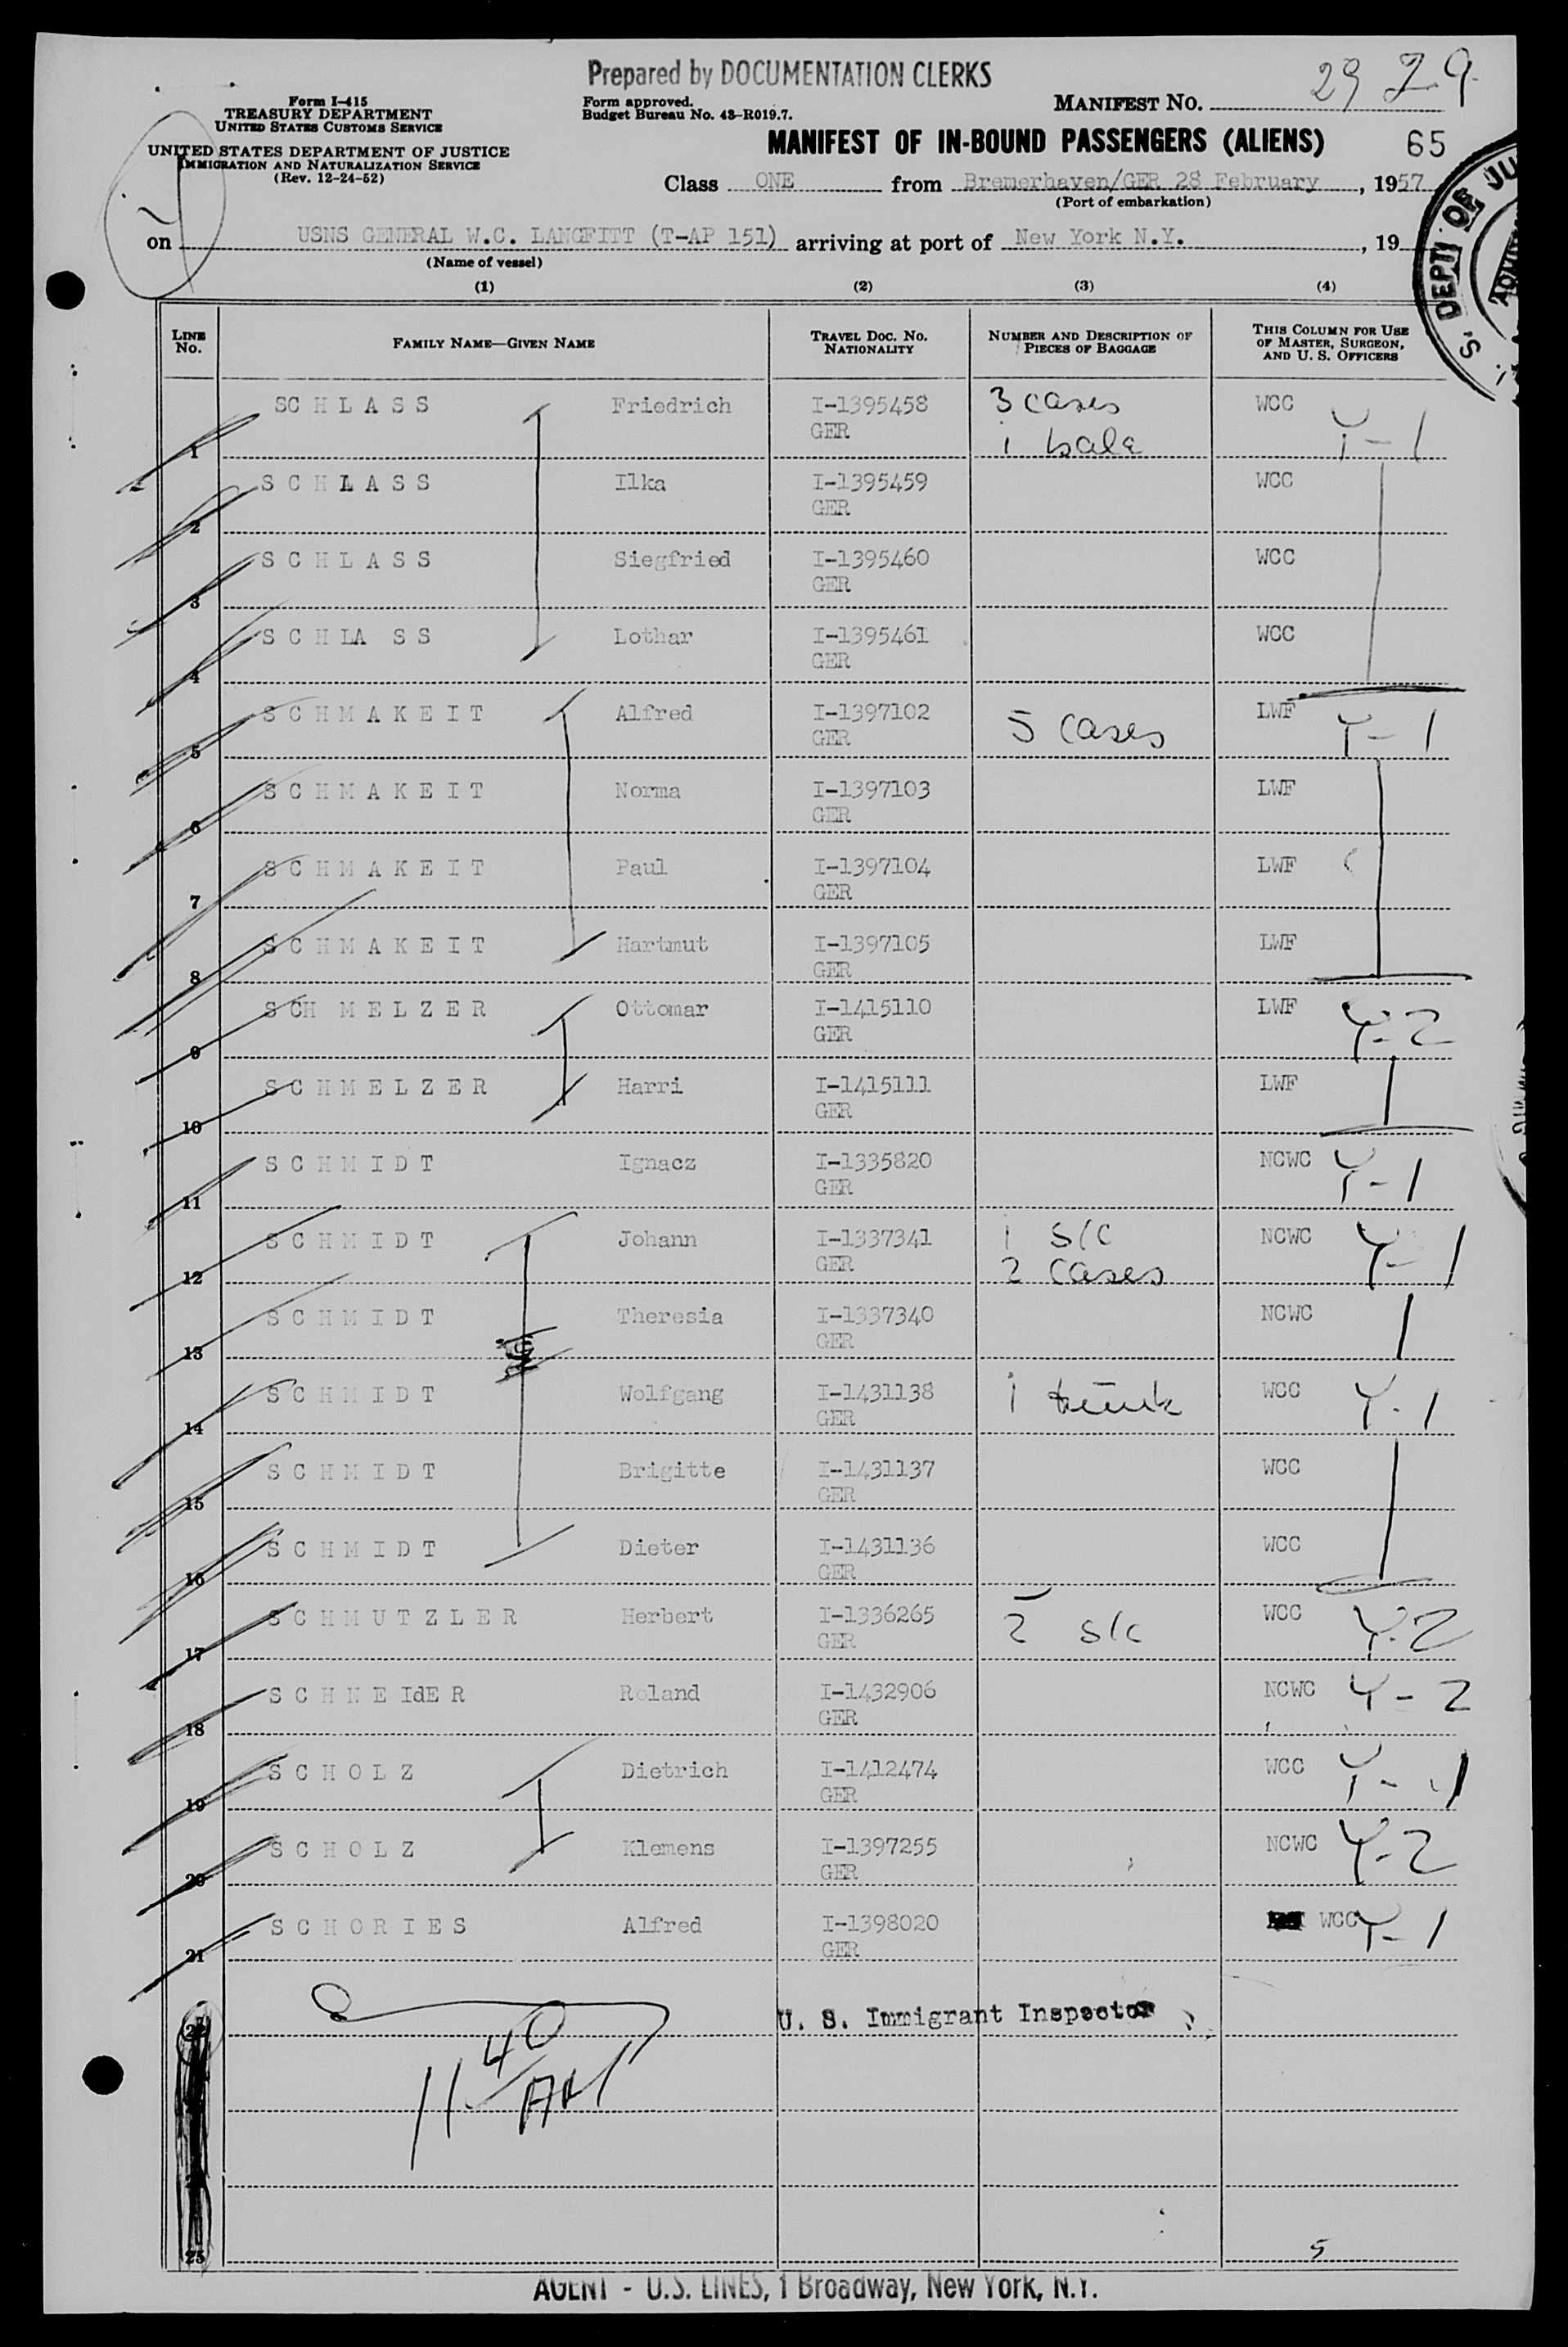 Prepared by DOCUMENTATION CLERKS
Form I-415
TREASURY DEPARTMENT
UNITED STATES CUSTOMS SERVICE
UNITED STATES DEPARTMENT OF JUSTICE
IMMIGRATION AND NATURALIZATION SERVICE
(Rev. 12-24-52)
Form approved.
Budget Bureau No. 43-R019.7.
MANIFEST NO. 29 29
MANIFEST OF IN-BOUND PASSENGERS (ALIENS) 65
Class ONE from Bremerhaven/GER 28 February, 1957
(Port of embarkation)
on USNS GENERAL W.C. LANGFITT (T-AP 151) arriving at port of New York N.Y., 19
(Name of vessel)
S. DEPT OF JU
(1) (2) (3) (4)
LINE NO. FAMILY NAME—GIVEN NAME TRAVEL DOC. NO. NATIONALITY NUMBER AND DESCRIPTION OF PIECES OF BAGGAGE THIS COLUMN FOR USE OF MASTER, SURGEON, AND U. S. OFFICERS
1 SC H L A S S Friedrich I-1395458 GER 3 cases 1 bale WCC Y-1
2 S C H L A S S Ilka I-1395459 GER WCC
3 S C H L A S S Siegfried I-1395460 GER WCC
4 S C H LA S S Lothar I-1395461 GER WCC
5 S C H M A K E I T Alfred I-1397102 GER 5 cases LWF Y-1
6 S C H M A K E I T Norma I-1397103 GER LWF
7 S C H M A K E I T Paul I-1397104 GER LWF
8 S C H M A K E I T Hartmut I-1397105 GER LWF
9 S CH M E L Z E R Ottomar I-1415110 GER LWF Y-2
10 S C H M E L Z E R Harri I-1415111 GER LWF
11 S C H M I D T Ignacz I-1335820 GER NCWC Y-1
12 S C H M I D T Johann I-1337341 GER 1 S/C 2 cases NCWC Y-1
13 S C H M I D T Theresia I-1337340 GER NCWC
14 S C H M I D T Wolfgang I-1431138 GER 1 trunk WCC Y-1
15 S C H M I D T Brigitte I-1431137 GER WCC
16 S C H M I D T Dieter I-1431136 GER WCC
17 S C H M U T Z L E R Herbert I-1336265 GER 2 S/C WCC Y-2
18 S C H N E IdE R Roland I-1432906 GER NCWC Y-2
19 S C H O L Z Dietrich I-1412474 GER WCC Y-1
20 S C H O L Z Klemens I-1397255 GER NCWC Y-2
21 S C H O R I E S Alfred I-1398020 GER WCC Y-1
22 U. S. Immigrant Inspector
11 40 AM
25 5
AGENT - U.S. LINES, 1 Broadway, New York, N.Y.